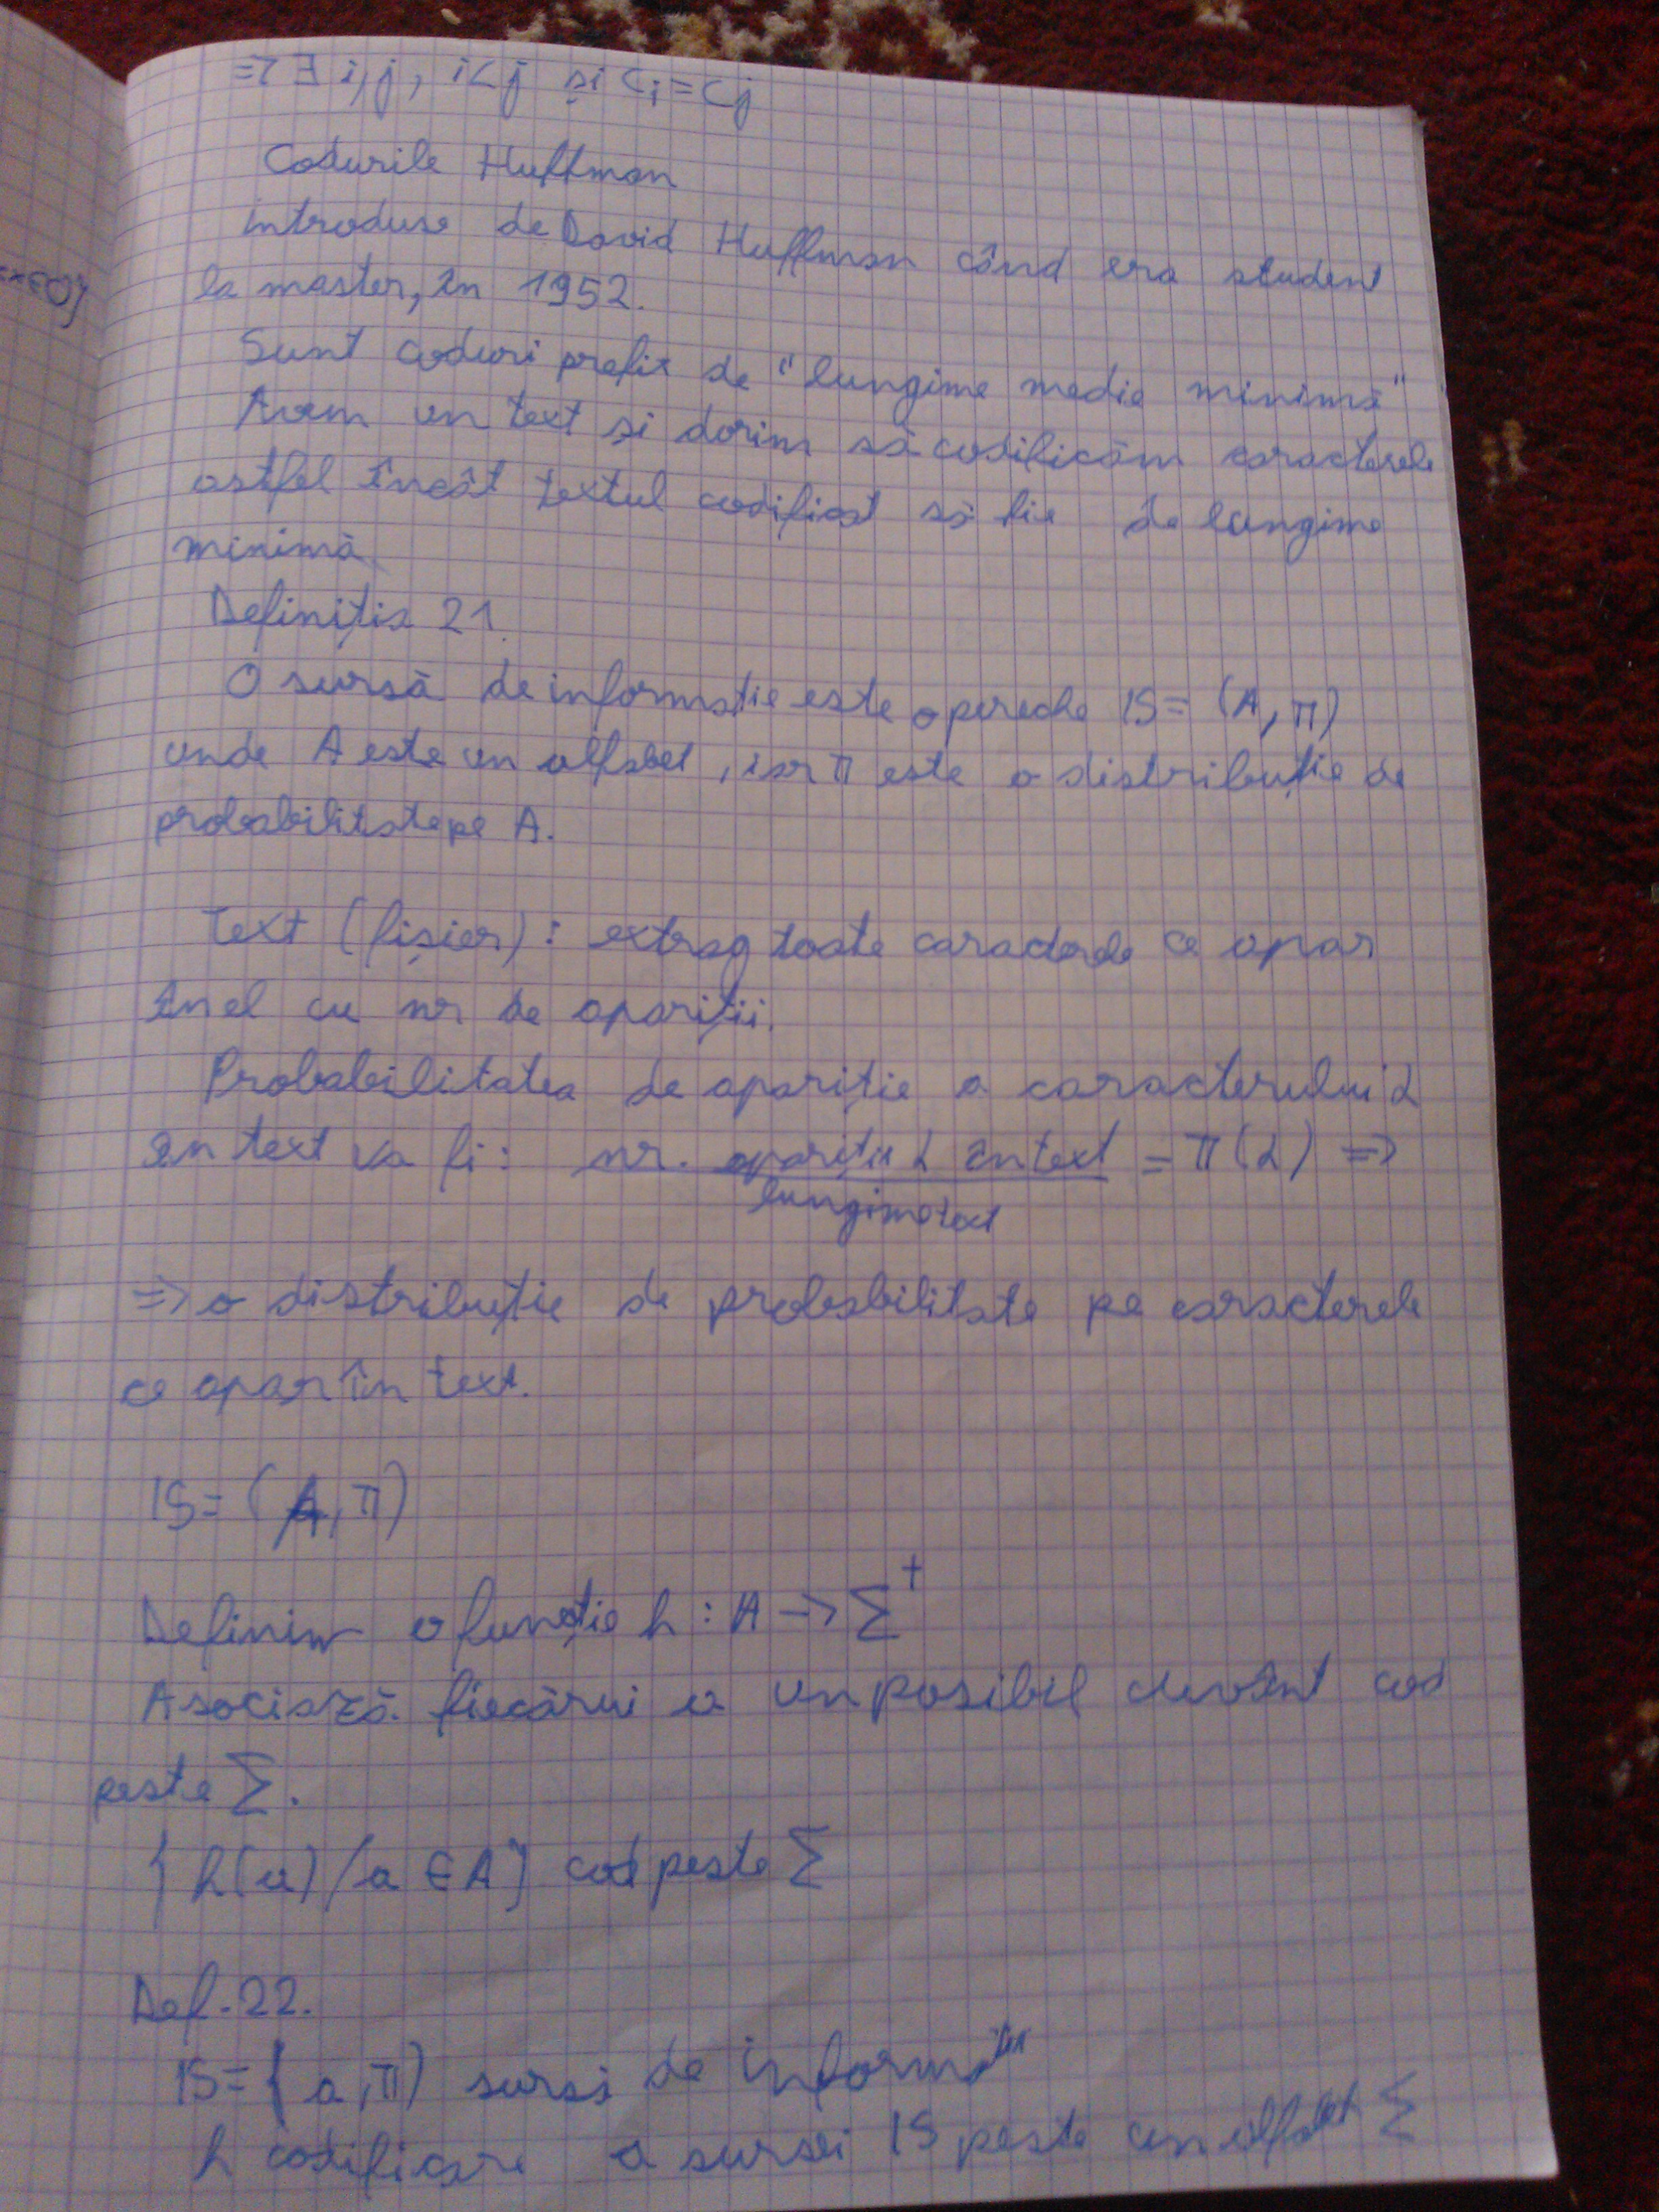 => ∃ i,j, i<j și ci=cj
Codurile Huffman
introduse de David Huffman când era student
la master, în 1952.
Sunt coduri prefix de "lungime medie minimă"
Avem un text și dorim să codificăm caracterele
astfel încât textul codificat să fie de lungime
minimă
Definiția 21.
O sursă de informație este o pereche IS= (A,π)
unde A este un alfabet, iar π este o distribuție de
probabilitate pe A.
Text (fișier): extrag toate caracterele ce apar
în el cu nr de apariții.
Probabilitatea de apariție a caracterului α
în text va fi: nr. apariții α în text = π(α) =>
lungime text
=> o distribuție de probabilitate pe caracterele
ce apar în text.
IS= (A,π)
Definim o funcție h: A -> Σ+
Asociază fiecărui a un posibil cuvânt cod
peste Σ.
{h(a)/a ∈A} cod peste Σ
Def. 22.
IS={a,π) sursă de
h codificare a sursei IS peste un alfabet Σ